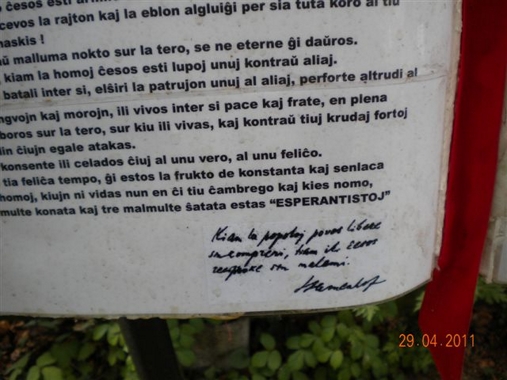 ĉesos esti
cevos la rajton kaj la eblon algluiĝi per sia tuta koro al tiu
naskis !
aŭ malluma nokto sur la tero, se ne eterne ĝi daŭros.
kiam la homoj ĉesos esti lupoj unuj kontraŭ aliaj.
batali inter si, elŝiri la patrujon unuj al aliaj, perforte altrudi al
ngvojn kaj morojn, ili vivos inter si pace kaj frate, en plena
boros sur la tero, sur kiu ili vivas, kaj kontraŭ tiuj krudaj fortoj
ilin ĉiujn egale atakas.
konsente ili celados ĉiuj al unu vero, al unu feliĉo.
tia feliĉa tempo, ĝi estos la frukto de konstanta kaj senlaca
homoj, kiujn ni vidas nun en ĉi tiu ĉambrego kaj kies nomo,
multe konata kaj tre malmulte ŝatata estas “ESPERANTISTOJ”
Kiam la popoloj povos libere
sin kompreni, tiam ili ĉesos
reciproke sin malami.
LZamenhof
29.04.2011